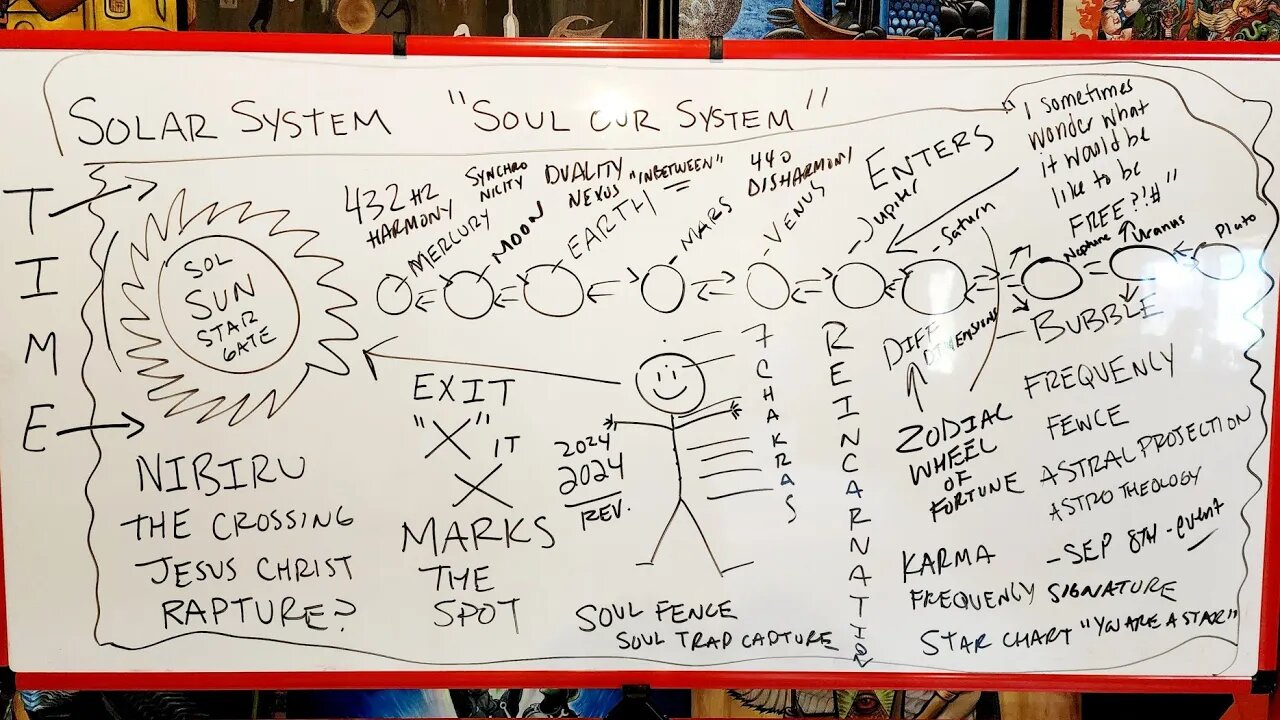 SOLAR SYSTEM "SOUL OUR SYSTEM"
"I sometimes
wonder what
it would be
like to be
FREE?!#"
TIME
SOL
SUN
STAR
GATE
432 HZ
HARMONY
SYNCHRO
NICITY
DUALITY
NEXUS "INBETWEEN"
440
DISHARMONY
ENTERS
MERCURY
MOON
EARTH
MARS
VENUS
Jupiter
Saturn
Neptune
Uranus
Pluto
NIBIRU
THE CROSSING
JESUS CHRIST
RAPTURE?
EXIT
"X" IT
X
MARKS
THE
SPOT
2024
2024
REV.
7 CHAKRAS
SOUL FENCE
SOUL TRAP CAPTURE
REINCARNATION
DIFF
DIMENSIONS
ZODIAC
WHEEL
OF
FORTUNE
BUBBLE
FREQUENCY
FENCE
ASTRAL PROJECTION
ASTRO THEOLOGY
KARMA - SEP 8TH - event
FREQUENCY SIGNATURE
STAR CHART "YOU ARE A STAR"